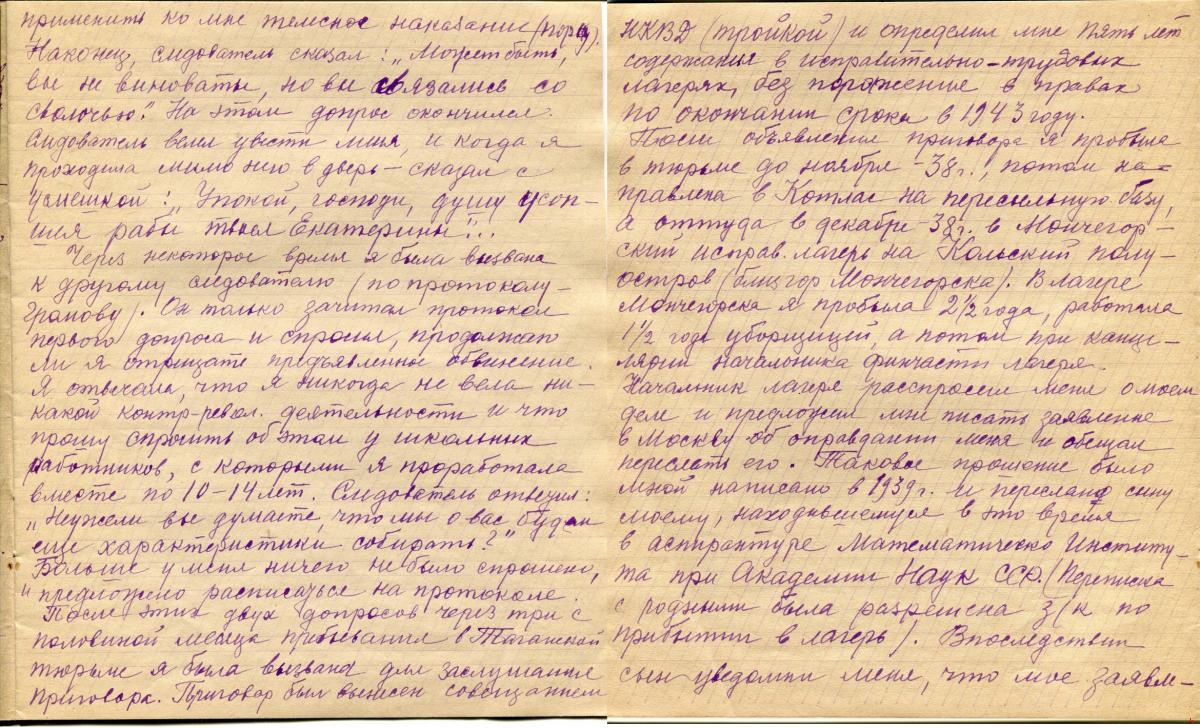 применить ко мне телесное наказание (порку).
Наконец, следователь сказал: „Может быть,
вы не виноваты, но вы связались со
сволочью." На этом допрос окончился.
Следователь велел увести меня, и когда я
проходила мимо него в дверь — сказал с
усмешкой: „Упокой, господи, душу усоп-
шея рабы твоея Екатерины"!..
Через некоторое время я была вызвана
к другому следователю (по протоколу —
Громову). Он только зачитал протокол
первого допроса и спросил, продолжаю
ли я отрицать предъявленное обвинение.
Я отвечала, что я никогда не вела ни-
какой контр-револ. деятельности и что
прошу спросить об этом у школьных
работников, с которыми я проработала
вместе по 10-14 лет. Следователь ответил:
„Неужели вы думаете, что мы о вас будем
еще характеристики собирать?"
Больше у меня ничего не было спрошено,
предложено расписаться на протоколе.
После этих двух допросов через три с
половиной месяца пребывания в Таганской
тюрьме я была вызвана для заслушания
приговора. Приговор был вынесен совещанием
НКВД (тройкой) и определил мне пять лет
содержанья в исправительно-трудовых
лагерях, без поражение в правах
по окончании срока в 1943 году.
После объявления приговора я пробыла
в тюрьме до ноября -38 г., потом на=
правлена в Котлас на пересыльную базу,
а оттуда в декабре -38 г. в Мончегор-
ский исправ. лагерь на Кольский полу-
остров (близ гор Мончегорска). В лагере
Мончегорска я пробыла 2½ года, работала
1½ года уборщицей, а потом при канце-
лярии начальника финчасти лагеря.
Начальник лагеря расспросил меня о моем
деле и предложил мне писать заявление
в Москву об оправдании меня и обещал
переслать его. Таковое прошение было
мной написано в 1939 г. и переслано сыну
моему, находившемуся в это время
в аспирантуре Математическо Институ-
та при Академии Наук СССР. (Переписка
с родными была разрешена з/к по
прибытии в лагерь). Впоследствии
сын уведомил меня, что мое заявл-